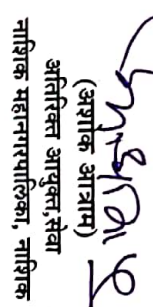 (अशोक आत्राम)
अतिरिक्त आयुक्त,सेवा
नाशिक महानगरपालिका, नाशिक